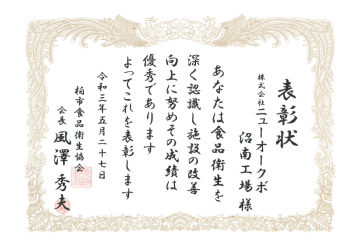 表彰状
株式会社ニューオークボ
沼南工場様
あなたは食品衛生を
深く認識し施設の改善
向上に努めその成績は
優秀であります
よってこれを表彰します
令和三年五月二十七日
柏市食品衛生協会
会長 風澤秀夫